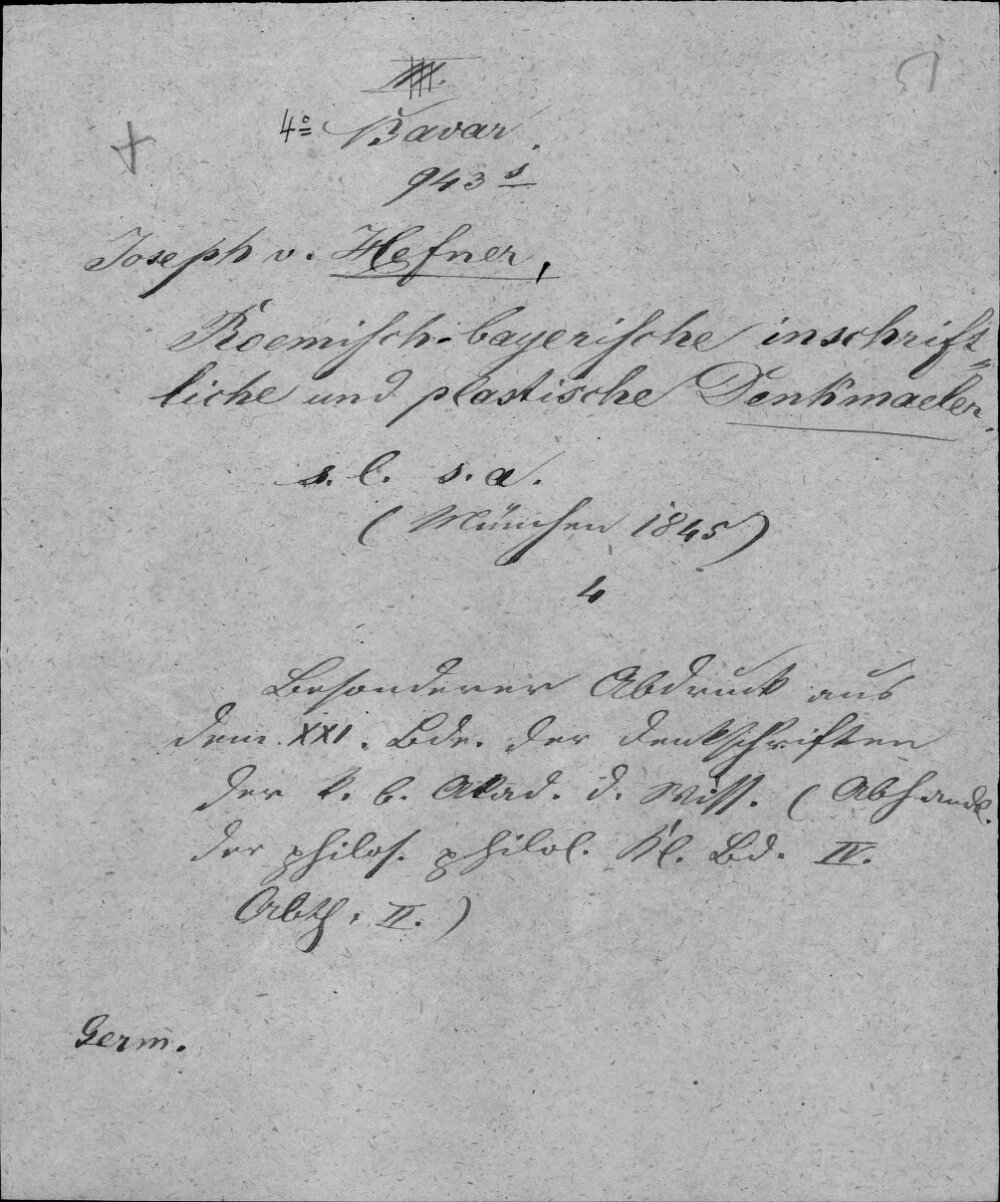 51
4º Bavar.
943 s
Joseph v. Hefner,
Roemisch-bayerische inschrift-
liche und plastische Denkmaeler.
s. l. s. a.
(München 1845)
4
Besonderer Abdruck aus
dem XXI. Bde. der Denkschriften
der k. b. Akad. d. Wiss. (Abhandl.
der philos. philol. Kl. Bd. IV.
Abth. II.)
Germ.